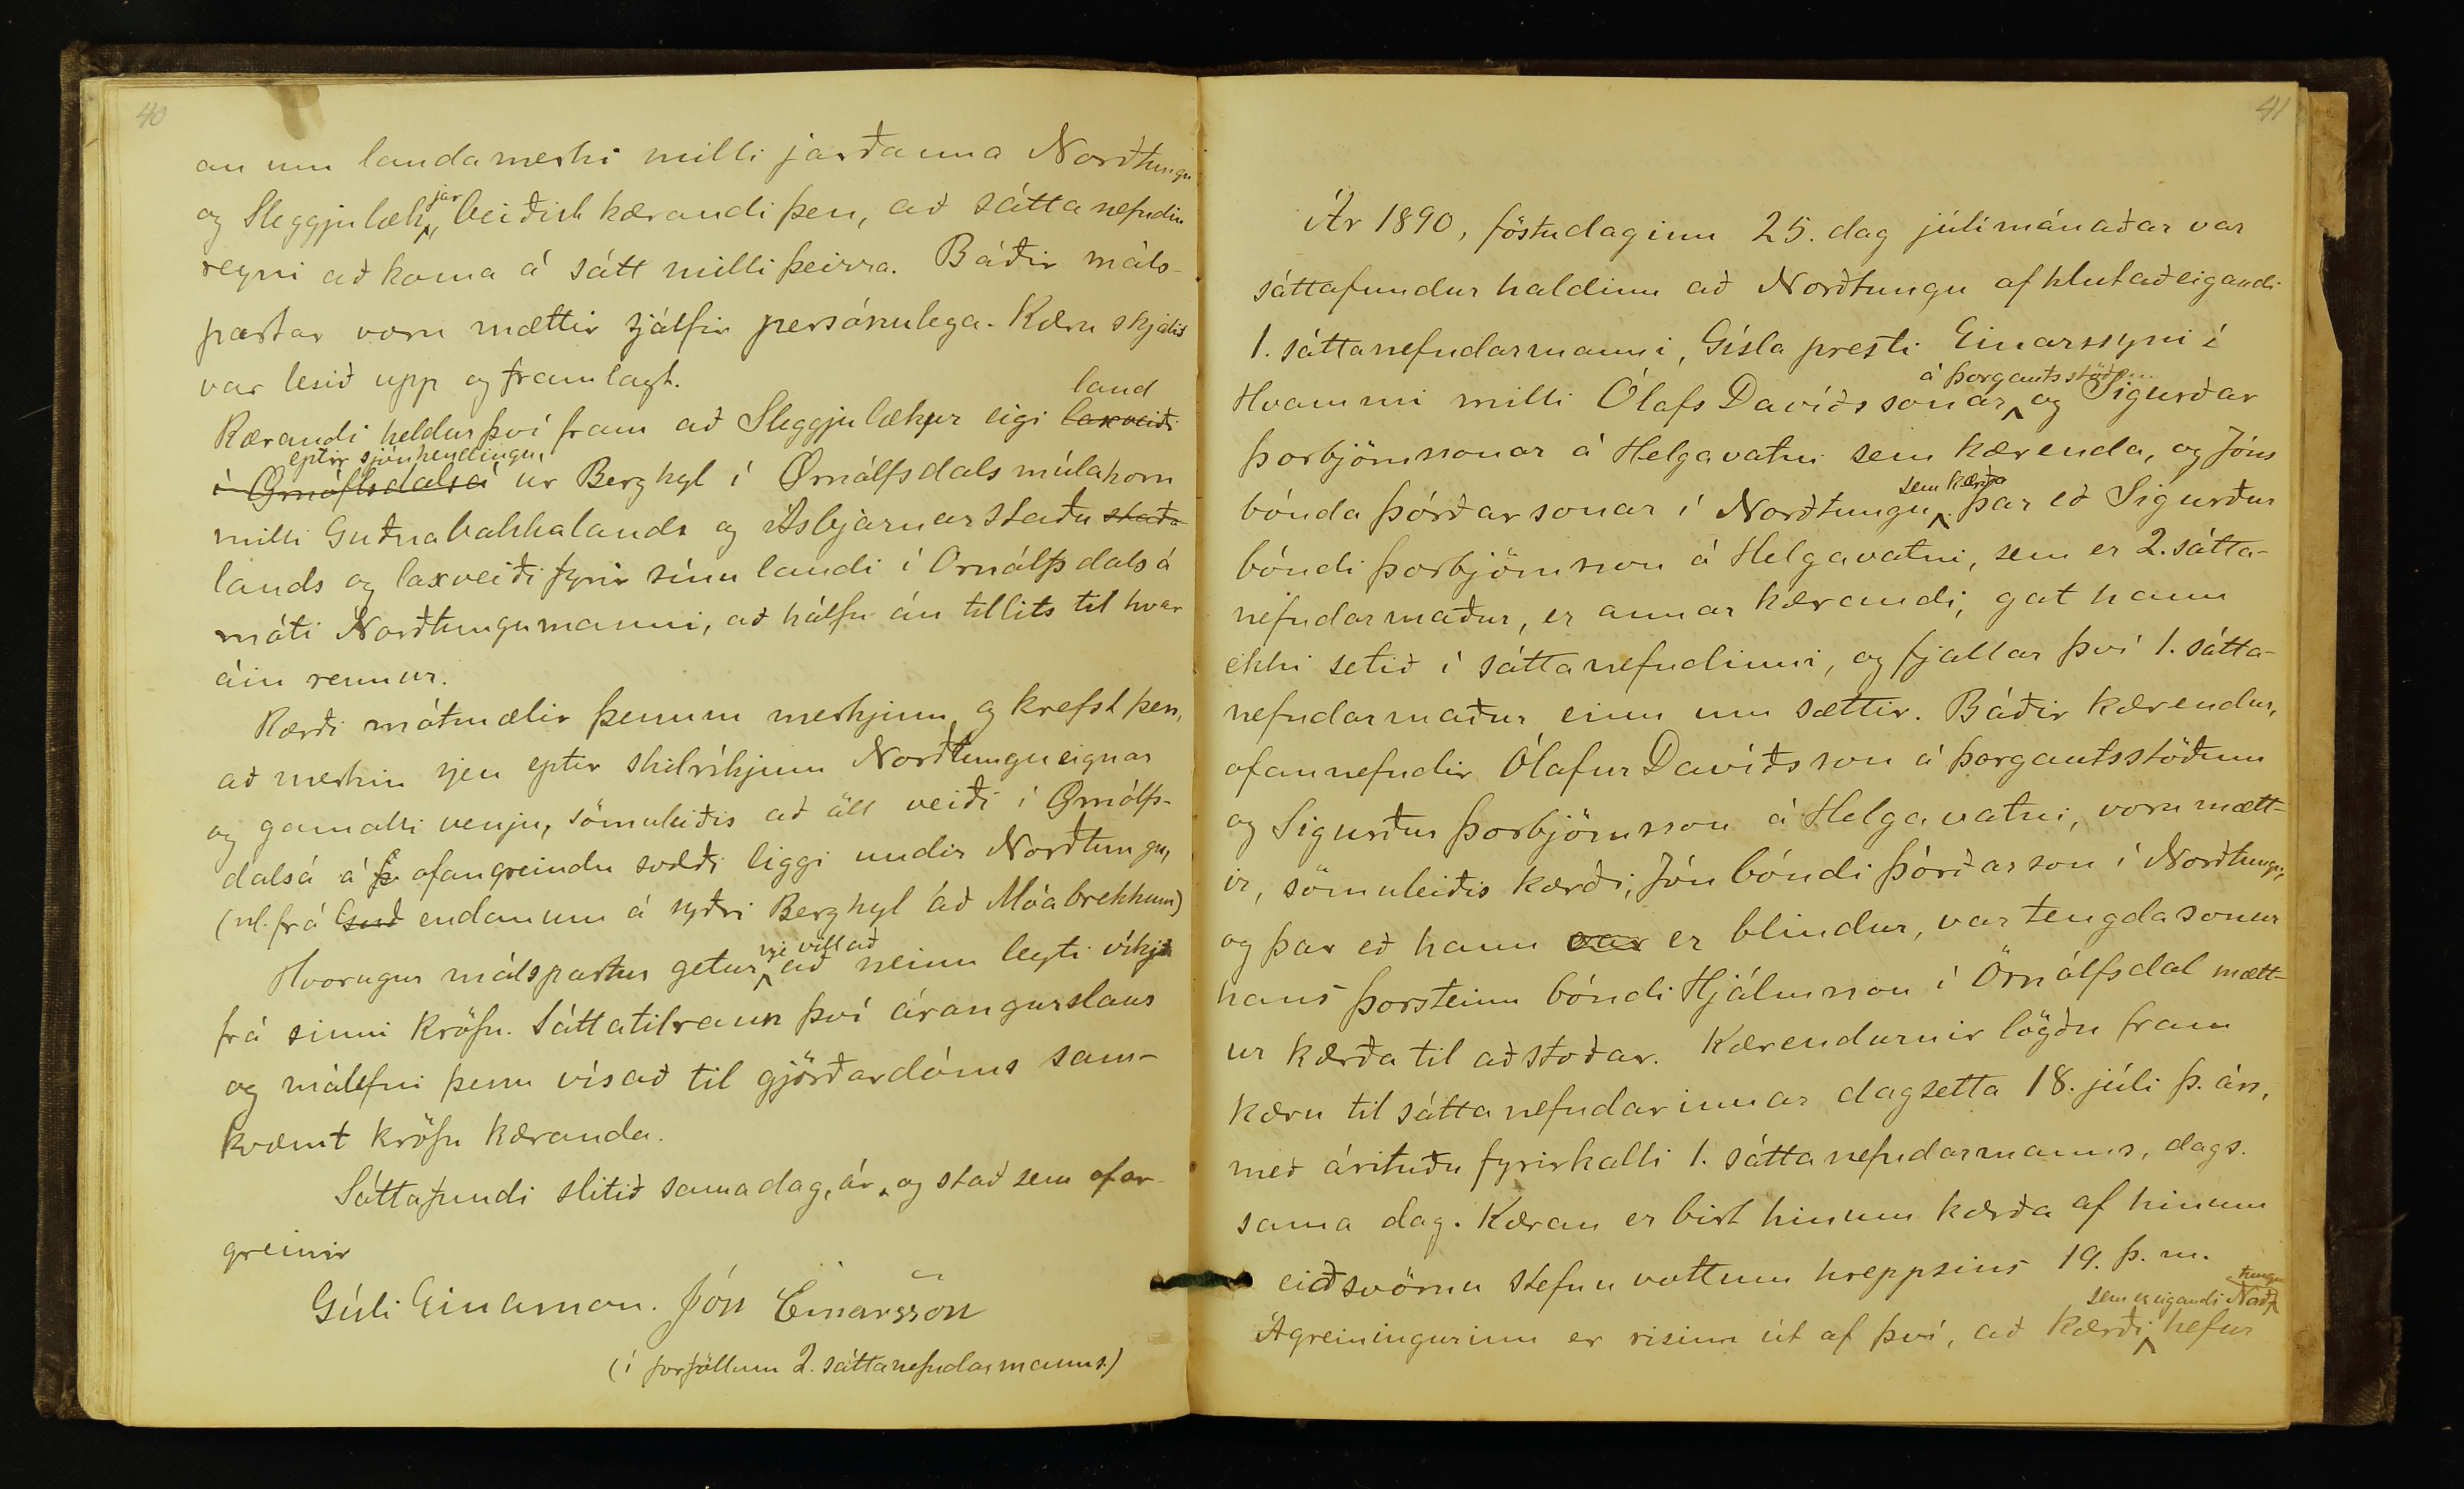 40
an um landamerki milli jarðanna Norðtungu
og Sleggjulækjar, beiðist kærandi þess, að sáttanefndin
reyni að koma á sátt milli þeirra. Báðir máls-
partar voru mættir sjálfir persónulega. Kæruskjalið
var lesið upp og framlagt.
land
Kærandi heldur því fram að Sleggjulækur eigi laxveiði
eptir sjónhendingu,
í Örnólfsdalsá úr Berghyl í Örnólfsdalsmúlahorn
milli Guðnabakkalands og Ásbjarnarstaða staða
lands og laxveiði fyrir sínu landi í Örnólfsdalsá
móti Norðtungumanni, að hálfu án tillits til hvar
áin rennur.
Kærði mótmælir þessum merkjum og krefst þess,
að merkin sjeu eptir skilríkjum Norðtungueignar
og gamalli venju, sömuleiðis að öll veiði í Örnólfs-
dalsá á þ ofangreindu svæði liggi undir Norðtungu,
(nl. frá Guð endanum á syðri Berghyl að Móabrekkum)
nje vill að
Hvorugur málspartur getur að neinu leyti vikja
frá sinni kröfu. Sáttatilraun því árangurslaus
og málefni þessu vísað til gjörðardóms sam-
kvæmt kröfu kæranda.
Sáttafundi slitið sama dag, ár, og stað sem ofar
greinir
Gísli Einarsson. Jón Einarsson
(í forföllum 2. sáttanefndarmanns)
41
Ár 1890, föstudaginn 25. dag júlímánaðar var
sáttafundur haldinn að Norðtungu af hlutaðeigandi
1. sáttanefndarmanni, Gísla presti Einarssyni í
á Þorgautsstöðum
Hvammi milli Ólafs Davíðssonar og Sigurðar
Þorbjörnssonar á Helgavatni sem kærenda, og Jóns
sem kærða
bónda Þórðarsonar í Norðtungu. Þar eð Sigurður
bóndi Þorbjörnsson á Helgavatni, sem er 2. sátta-
nefndarmaður, er annar kærandi, gat hann
ekki setið í sáttanefndinni, og fjallar því 1. sátta-
nefndarmaður einn um sættir. Báðir kærendur,
ofannefndir Ólafur Davíðsson á Þorgautsstöðum
og Sigurður Þorbjörnsson á Helgavatni, voru mætt-
ir, sömuleiðis kærði, Jón bóndi Þórðarson í Norðtungu,
og þar eð hann var er blindur, var tengdasonur
hans Þorsteinn bóndi Hjálmsson í Örnólfsdal mætt-
ur kærða til aðstoðar. Kærendurnir lögðu fram
kæru til sáttanefndarinnar dagsetta 18. júlí þ. árs,
með árituðu fyrirkalli 1. sáttanefndarmanns, dags.
sama dag. Kæran er birt hinum kærða af hinum
eiðsvörnu stefnuvottum hreppsins 19. þ. m.
sem er eigandi Norðtungu
Ágreiningurinn er risinn út af því, að kærði hefur